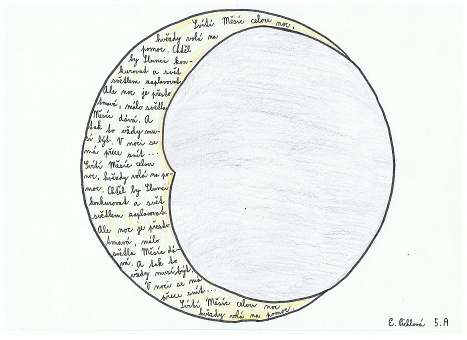 Svítí Měsíc celou noc,
hvězdy volá na
pomoc. Chtěl
by Slunci kon-
kurovat a svět
světlem zaplavovat.
Ale noc je přesto
tmavá, málo světla
Měsíc dává. A
tak to vždy mu-
sí být. V noci se
má přece snít...
Svítí Měsíc celou
noc, hvězdy volá na po-
moc. Chtěl by Slunci
konkurovat a svět
světlem zaplavovat.
Ale noc je přesto
tmavá, málo
světla Měsíc dá-
vá. A tak to
vždy musí být.
V noci se má
přece snít...
Svítí Měsíc celou noc
hvězdy volá na pomoc.
E. 5.A